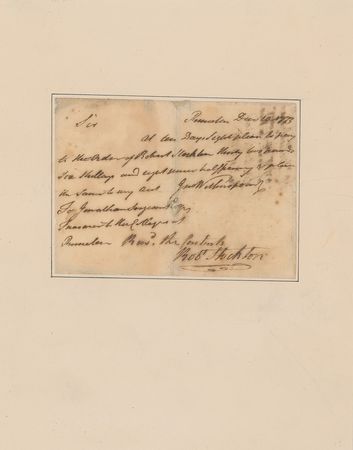 Princeton Decr 19 1773
Sir
At ten Days Sight please to pay
to the Order of Robert Stockton thirty two pounds
six shillings and eight pence half penny & place
the same to my acct Jno Witherspoon
To Jonathan Sergeant Esqr
Treasurer to the College at
Princeton Recd. the Contents
Robt Stockton